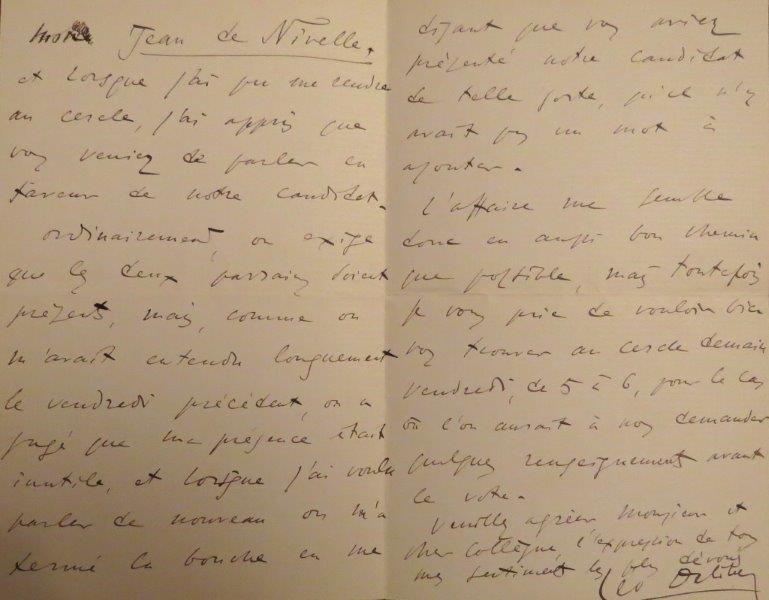 mon Jean de Nivelle.
et lorsque j'ai pu me rendre
au cercle, j'ai appris que
vous veniez de parler en
faveur de notre candidat.
ordinairement, on exige
que les deux parrains soient
présents, mais, comme on
m'avait entendu longuement
le vendredi précédent, on a
jugé que ma présence était
inutile, et lorsque j'ai voulu
parler de nouveau on m'a
fermé la bouche en me
disant que vous aviez
présenté notre candidat
de telle sorte, qu'il n'y
avait pas un mot à
ajouter.
L'affaire me semble
donc en aussi bon chemin
que possible, mais toutefois
je vous prie de vouloir bien
vous trouver au cercle demain
vendredi, de 5 à 6, pour le cas
où l'on aurait à nous demander
quelques renseignements avant
le vote.
Veuillez agréer Monsieur et
cher Collègue, l'expression de tous
mes sentiments les plus dévoués
Léo Delibes